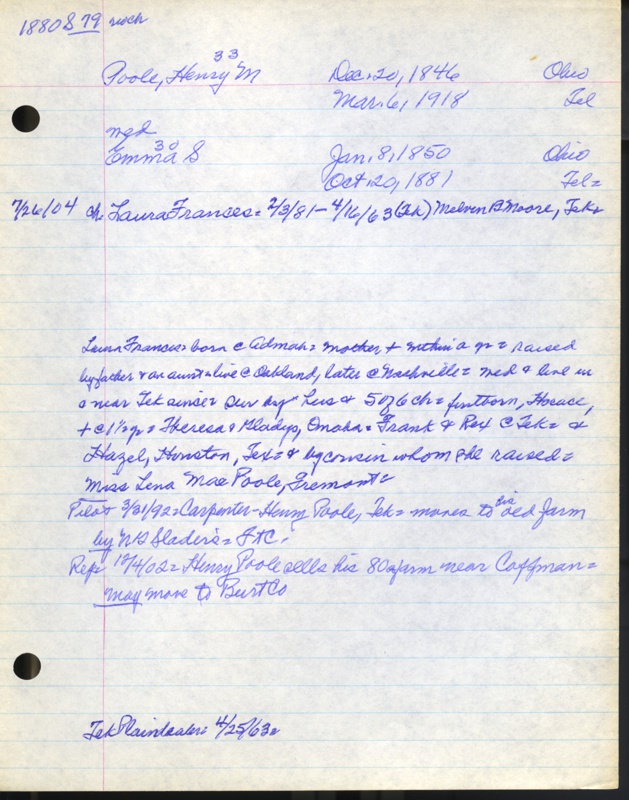 1880 S 79
33
Poole, Henry M Dec. 20, 1846 Ohio
Mar. 6, 1918 Tek
mgd
30
Emma S Jan. 8, 1850 Ohio
Oct. 20, 1881 Tek=
7/26/04 ch. Laura Frances = 2/3/81 - 4/16/63 (Tek) Melvin B Moore, Tek=
Laura Frances = born c Admah = mother + within a yr = raised
by father & an aunt = live c Oakland, later c Nashville = med & live in
o near Tek since = Sur by hus & 5 of 6 ch = firstborn, Horace,
+ c 1½ yr = Theresa & Gladys, Omaha = Frank & Rex c Tek = &
Hazel, Houston, Tex = & by cousin whom she raised =
Miss Lena Mae Poole, Fremont =
Pilot 3/31/92 = Carpenter-Henry Poole, Tek = moves to his old farm
by Slader's = FtC.
Rep: 12/4/02 = Henry Poole sells his 80a farm near Coffman =
may move to Burt Co
Tek Plaindealer: 4/25/63=